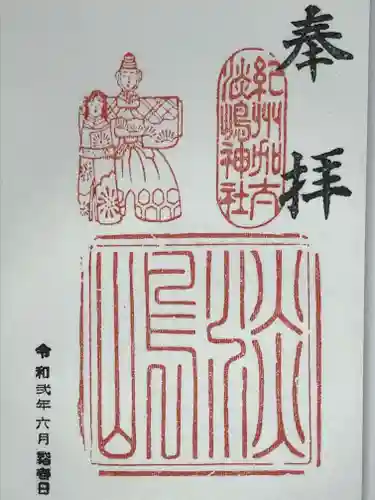 奉拝
紀州加太
淡嶋神社
淡嶋
令和弐年六月 日